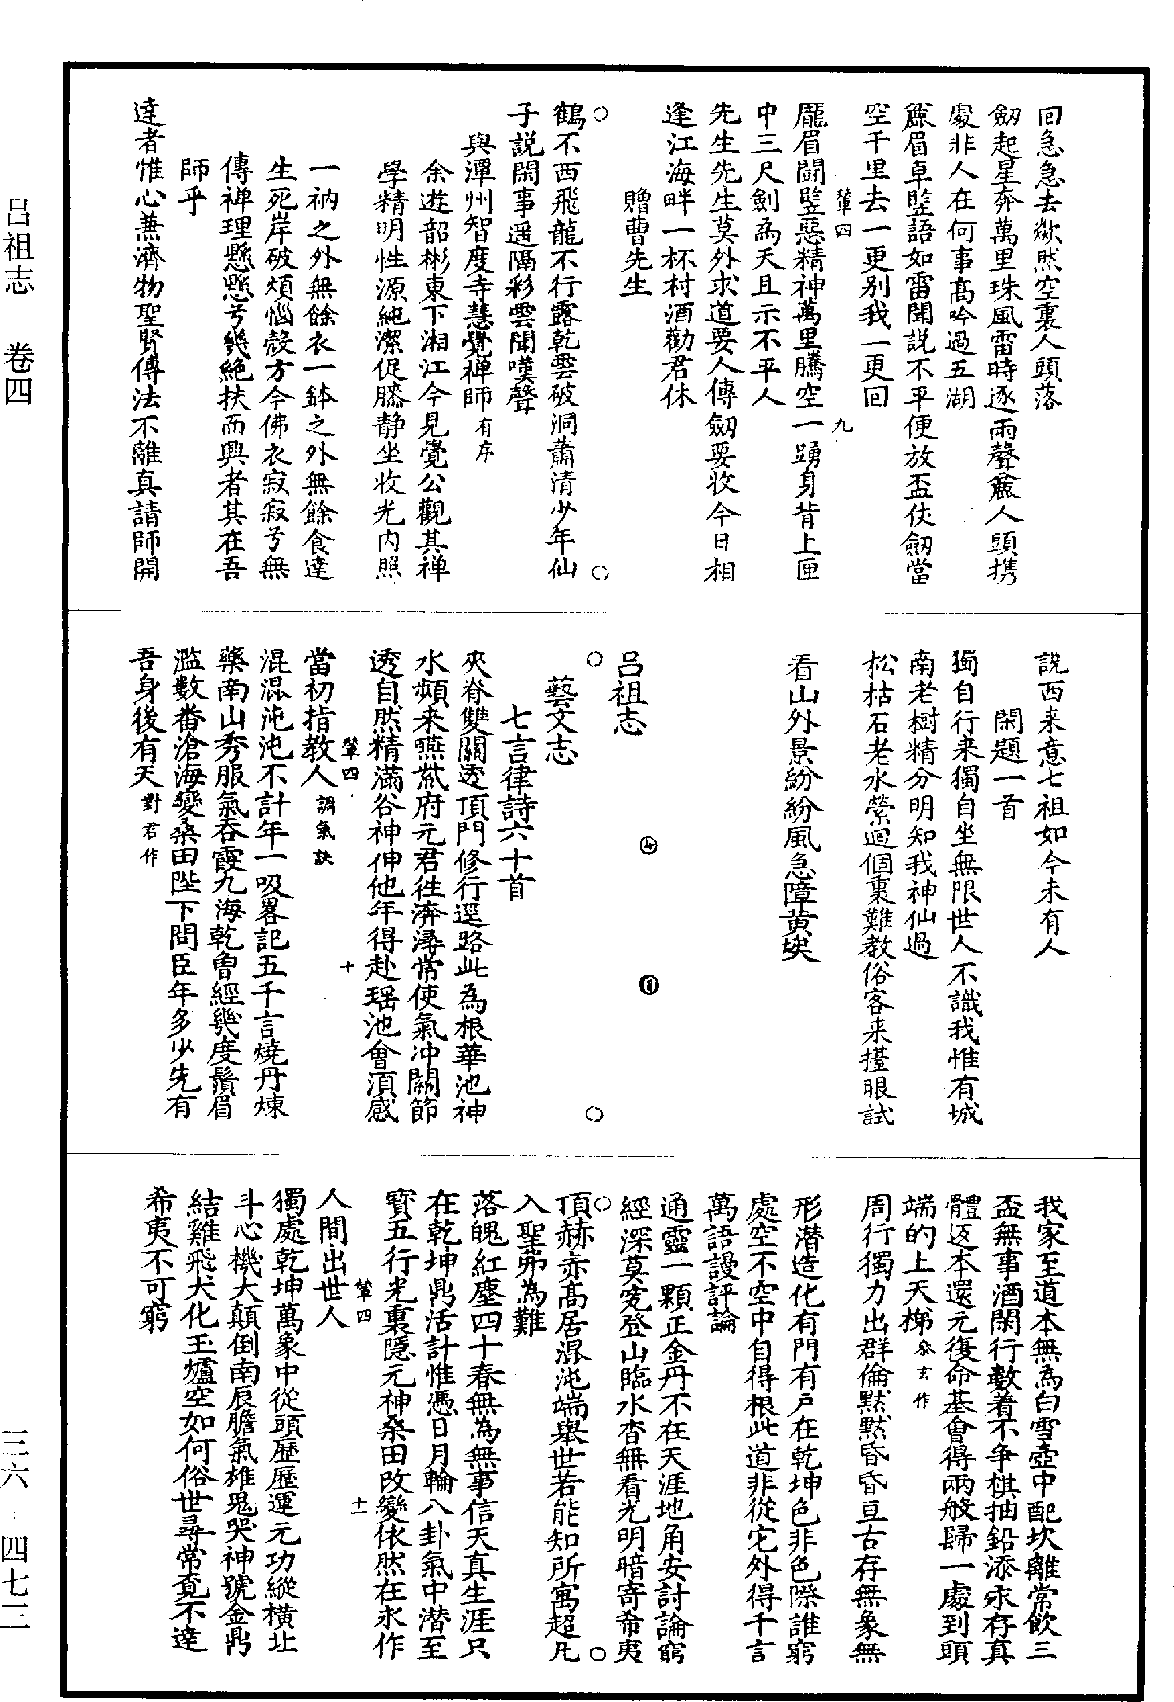 呂祖志　卷四
三六・四七三
回急急去欻然空裏人頭落
劔起星奔萬里珠風雷時逐雨聲麄人頭携
處非人在何事高吟過五湖
麄眉卓豎語如雷聞說不平便放盃伏劔當
空千里去一更別我一更回
輦四　九
龎眉鬪豎惡精神萬里騰空一踴身背上匣
中三尺劍為天且示不平人
先生先生莫外求道要人傳劔要收今日相
逢江海畔一杯村酒勸君休
贈曹先生
鶴不西飛龍不行露乾雲破洞蕭清少年仙
子說閑事遥隔彩雲聞嘆聲
與潭州智度寺慧覺禅師有序
余遊韶郴東下湘江今見覺公觀其禅
學精明性源純潔促膝静坐收光内照
一衲之外無餘衣一鉢之外無餘食達
生死岸破煩惱殼方今佛衣寂寂兮無
傳禅理懸懸兮幾絶扶而興者其在吾
師乎
達者惟心兼濟物聖賢傳法不離真請師開
說西来意七祖如今未有人
閑題一首
獨自行来獨自坐無限世人不識我惟有城
南老樹精分明知我神仙過
松枯石老水縈迴個裏難教俗客来擡眼試
看山外景紛紛風急障黄埃
呂祖志
藝文志
七言律詩六十首
夾脊雙關透頂門修行逕路此為根華池神
水頻来嚥紫府元君往濟潯常使氣冲關節
透自然精滿谷神伸他年得赴瑶池會湏感
輦四　十
當初指教人調氣訣
混混沌沌不計年一吸畧記五千言燒丹煉
藥南山秀服氣吞霞九海乾魯經幾度鬚眉
濫數畨滄海變桑田陛下問臣年多少先有
吾身後有天對君作
我家至道本無為白雪壺中配坎離常飲三
盃無事酒閑行數着不争棋抽鉛添汞存真
體返本還元復命基會得兩般歸一處到頭
端的上天梯叅玄作
周行獨力出群倫默默昏昏亘古存無象無
形潜造化有門有戶在乾坤色非色際誰窮
處空不空中自得根此道非從它外得千言
萬語謾評論
通靈一顆正金丹不在天涯地角安討論窮
經深莫究登山臨水杳無看光明暗寄希夷
頂赫赤高居混沌端舉世若能知所寓超凡
入聖弗為難
落魄紅塵四十春無為無事信天真生涯只
在乾坤鼎活計惟憑日月輪八卦氣中潜至
寳五行光裏隱元神桑田改變依然在永作
輦四　十一
人間出世人
獨處乾坤萬象中從頭歷歷運元功縱横北
斗心機大顛倒南辰膽氣雄鬼哭神號金鼎
結雞飛犬化玉爐空如何俗世尋常覔不達
希夷不可窮